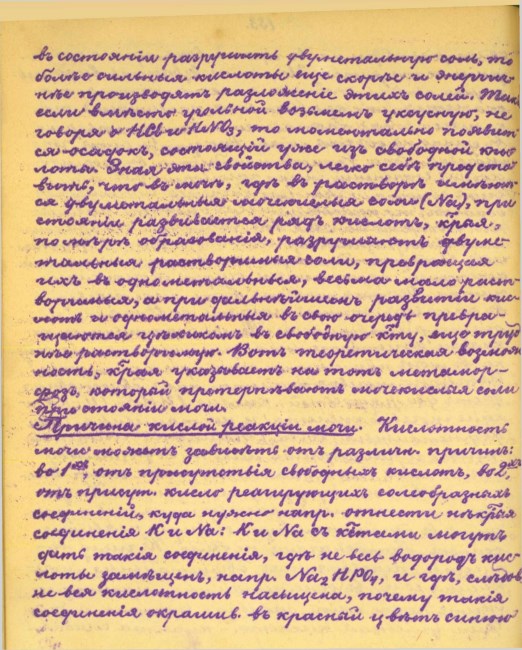 въ состоянiи разрушить двуметальную соль, то
болѣе сильныя кислоты еще скорѣе и энергич-
нѣе производятъ разложенiе этихъ солей. Такъ
если вмѣсто угольной возьмемъ уксусную, не
говоря о HCl и HNO3, то моментально появит-
ся осадокъ, состоящiй уже изъ свободной кис-
лоты. Зная эти свойства, легко себѣ предста-
вить, что въ мочѣ, гдѣ въ растворѣ имѣют-
ся двуметальныя мочекислыя соли (Na), при
стоянiи развивается рядъ кислотъ, к-рыя,
по мѣрѣ образованiя, разрушаютъ двуме-
тальныя растворимыя соли, превращая
ихъ въ однометальныя, весьма мало раст-
воримыя, а при дальнѣйшемъ развитiи кис-
лотъ и однометальныя въ свою очередь превра-
щаются цѣликомъ въ свободную к-ту, еще труд-
нѣе растворимую. Вотъ теоретическая возмож-
ность, к-рая указываетъ на тотъ метамор-
фозъ, который претерпѣваютъ мочекислыя соли
при стоянiи мочи.
Причина кислой реакцiи мочи. Кислотность
мочи можетъ зависѣть отъ различн. причинъ:
во 1ыхъ, отъ присутствiя свободныхъ кислотъ, во 2ыхъ,
отъ присут. кисло реагирующихъ солеобразныхъ
соединенiй, куда нужно напр. отнести нѣк-рыя
соединенiя K и Na: K и Na съ к-тами могутъ
дать такiя соединенiя, гдѣ не весь водородъ кис-
лоты замѣщенъ, напр. Na2HPO4, и гдѣ, слѣдов.,
не вся кислотность насыщена, почему такiя
соединенiя окрашив. въ красный цвѣтъ синюю